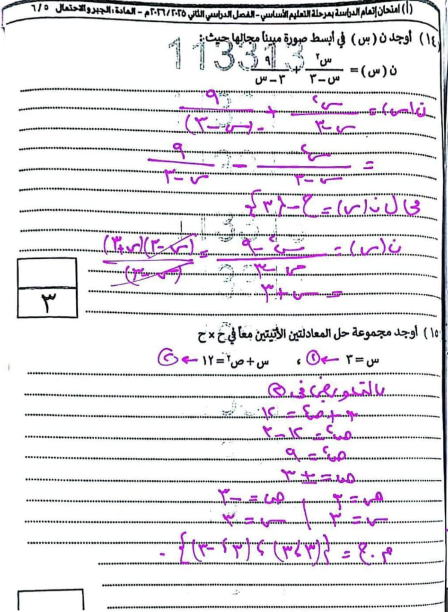 (أ) امتحان إتمام الدراسة بمرحلة التعليم الأساسي - الفصل الدراسي الثاني ٢٠٢٥/٢٠٢٦م - المادة: الجبر والاحتمال ٦/٥
١٤) أوجد ن (س) في أبسط صورة مبيناً مجالها حيث:
113313
ن (س) = س٢/(س-٣) + ٩/(٣-س)
ن(س) = س٢/(س-٣) + ٩/-(س-٣)
= س٢/(س-٣) - ٩/(س-٣)
مجال ن(س) = ح - {٣}
ن(س) = (س٢-٩)/(س-٣) = (س-٣)(س+٣)/(س-٣)
= س+٣
٣
١٥) أوجد مجموعة حل المعادلتين الآتيتين معاً في ح × ح
س = ٣ ← ① ، س + ص٢ = ١٢ ← ②
بالتعويض في ②
٣ + ص٢ = ١٢
ص٢ = ١٢ - ٣
ص٢ = ٩
ص = ± ٣
ص = ٣ | ص = -٣
س = ٣ | س = ٣
م.ح = {(٣،٣) ، (٣،-٣)}